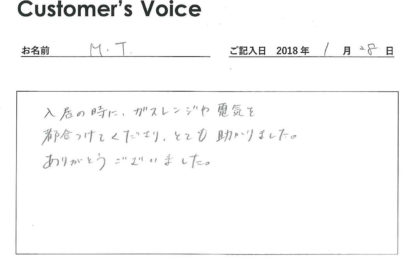 Customer's Voice
お名前 M.T. ご記入日 2018 年 1 月 28 日
入居の時に、ガスレンジや電気を
都合つけてくださり、とても助かりました。
ありがとうございました。